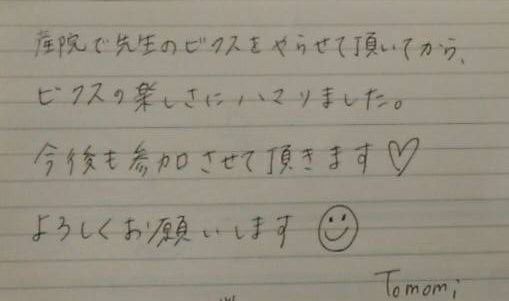 産院で先生のビクスをやらせて頂いてから、
ビクスの楽しさにハマりました。
今後も参加させて頂きます♡
よろしくお願いします☺
Tomomi